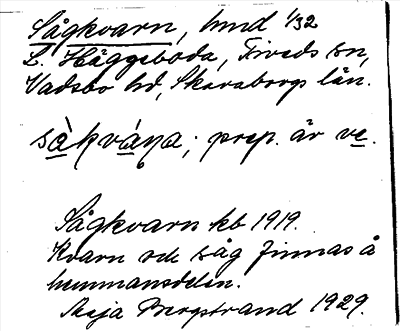 Sågkvarn, hmd 1/32
L. Häggeboda, Tiveds sn,
Vadsbo hd, Skaraborgs län.
sàkváṇa; prep. är ve.
Sågkvarn kb 1919.
Kvarn och såg finnas å
hemmansdelen.
Maja Bergstrand 1929.